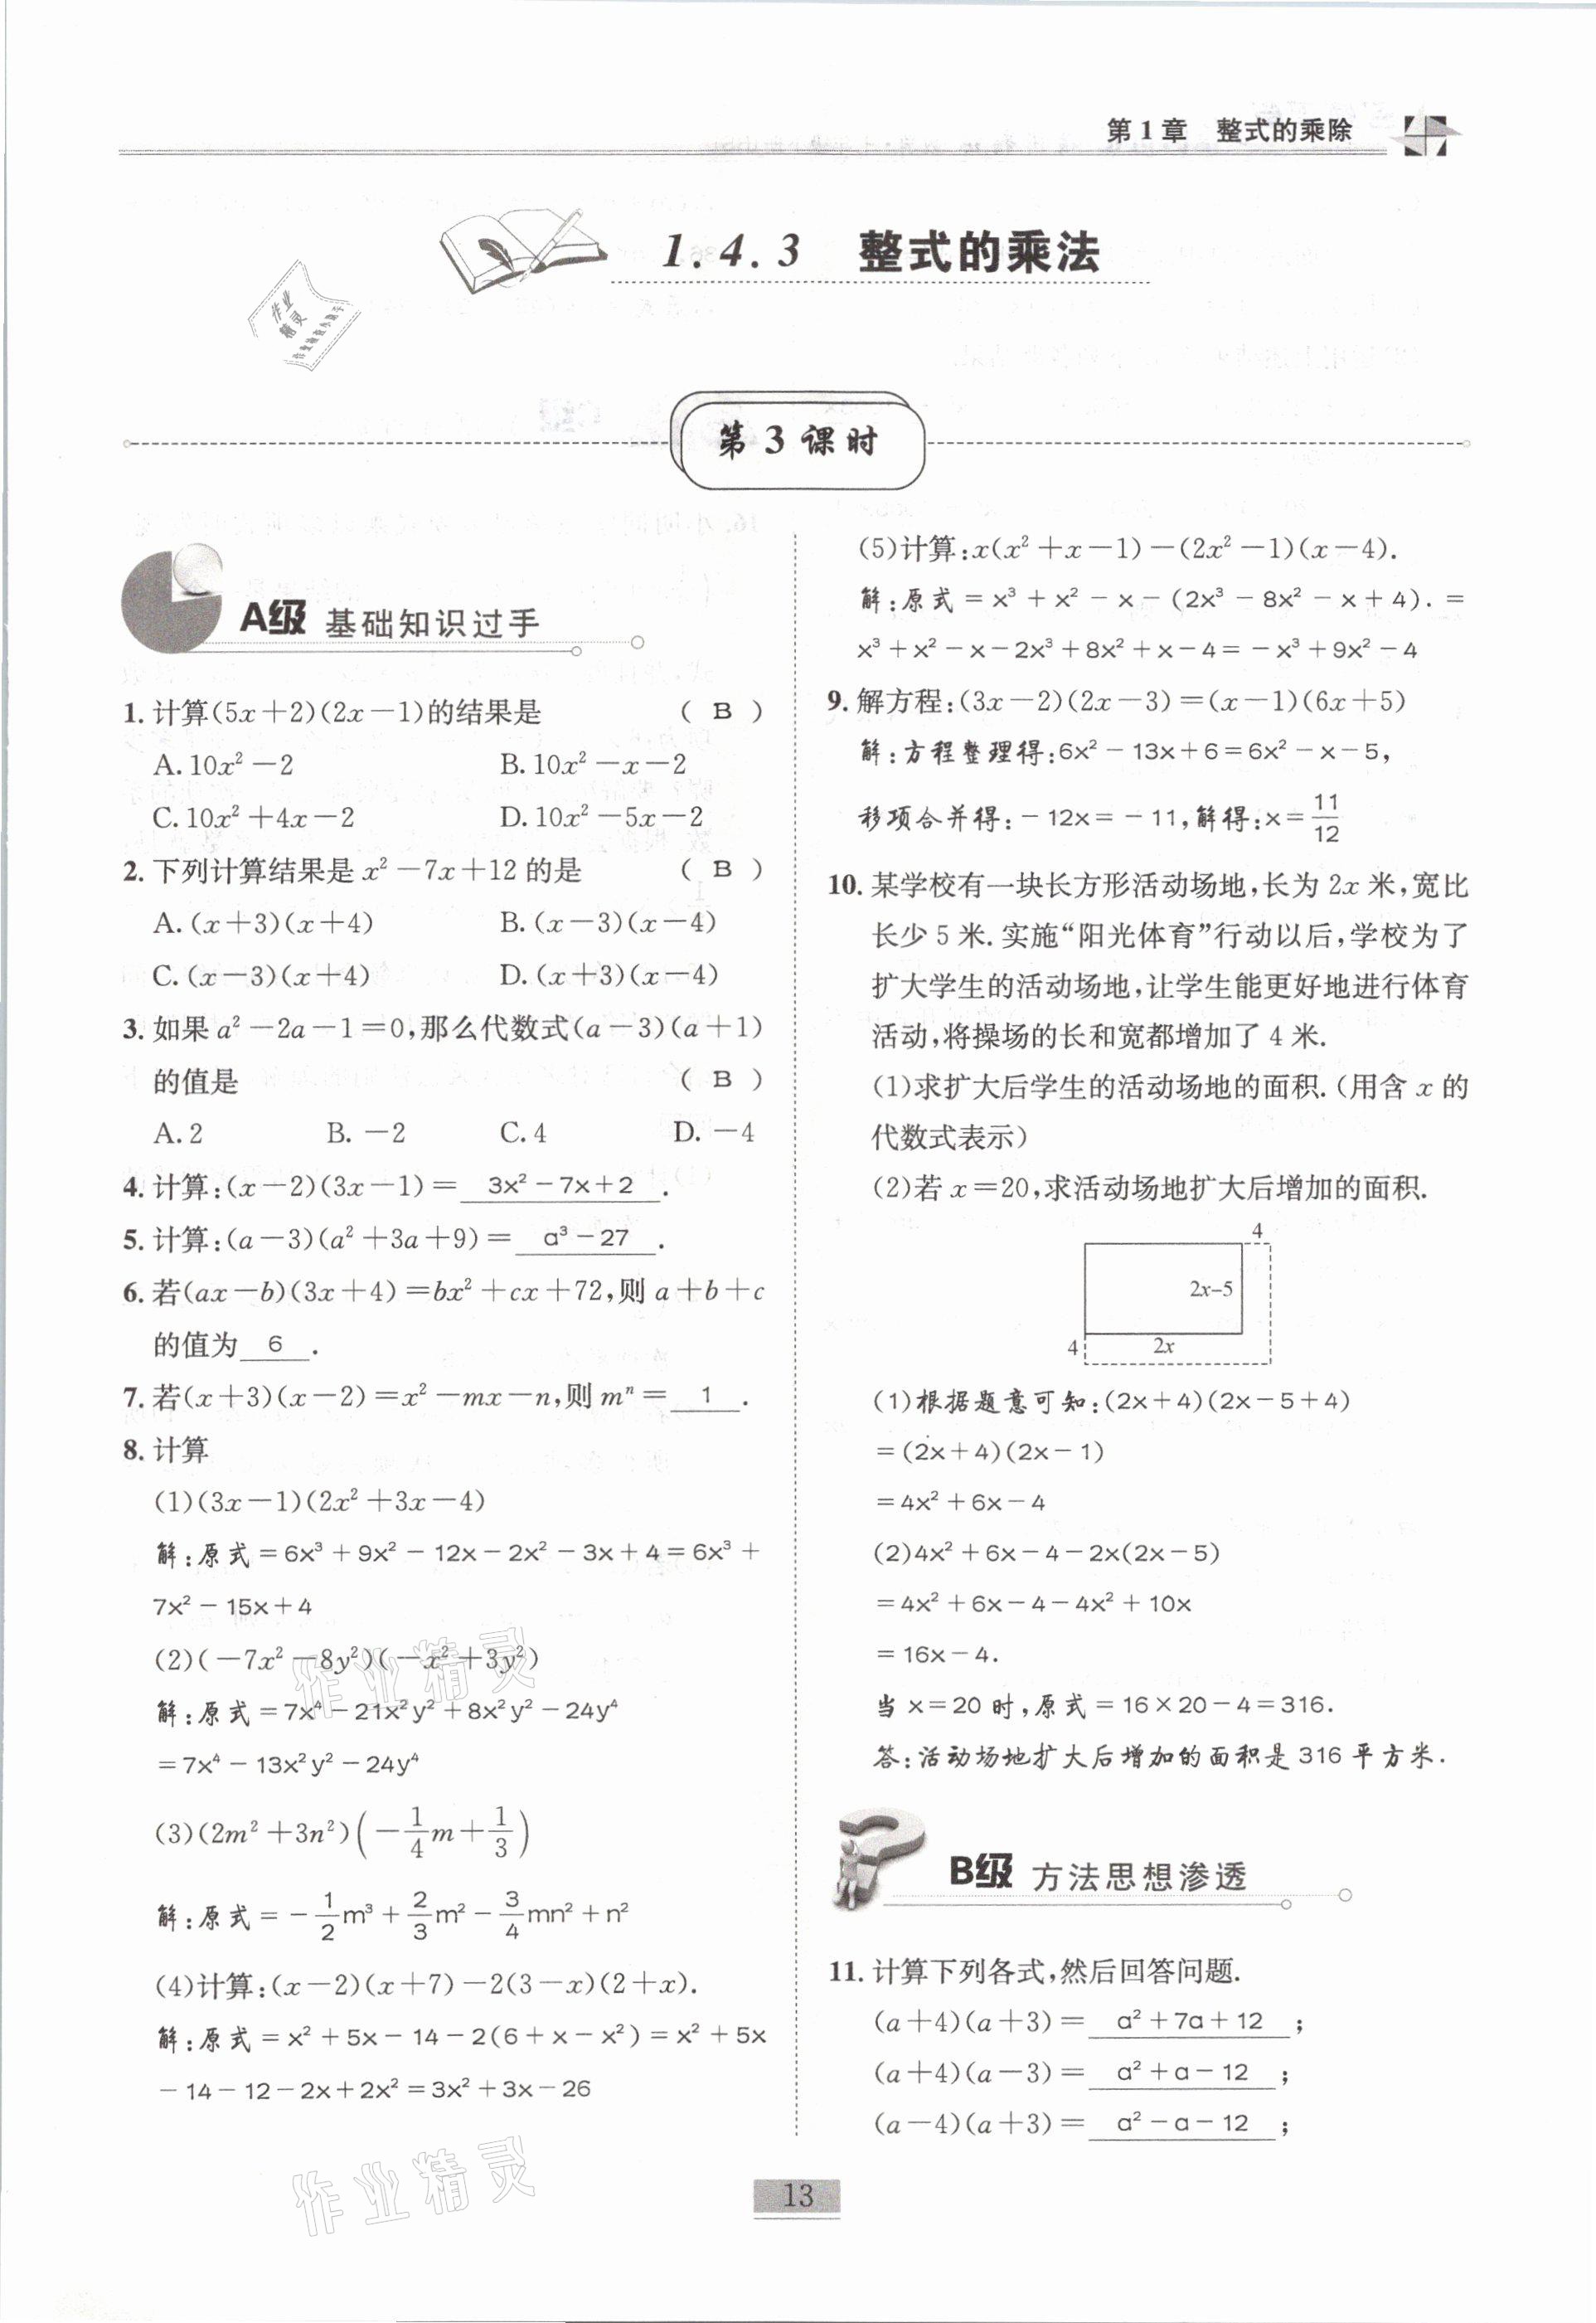 第1章 整式的乘除
1.4.3 整式的乘法
作业
精灵
第3课时
A级 基础知识过手
1. 计算(5x+2)(2x-1)的结果是 ( B )
A. 10x²-2 B. 10x²-x-2
C. 10x²+4x-2 D. 10x²-5x-2
2. 下列计算结果是 x²-7x+12 的是 ( B )
A. (x+3)(x+4) B. (x-3)(x-4)
C. (x-3)(x+4) D. (x+3)(x-4)
3. 如果 a²-2a-1=0,那么代数式(a-3)(a+1)
的值是 ( B )
A. 2 B. -2 C. 4 D. -4
4. 计算:(x-2)(3x-1)= 3x²-7x+2 .
5. 计算:(a-3)(a²+3a+9)= a³-27 .
6. 若(ax-b)(3x+4)=bx²+cx+72,则 a+b+c
的值为 6 .
7. 若(x+3)(x-2)=x²-mx-n,则 mⁿ= 1 .
8. 计算
(1)(3x-1)(2x²+3x-4)
解:原式=6x³+9x²-12x-2x²-3x+4=6x³+
7x²-15x+4
(2)(-7x²-8y²)(-x²+3y²)
解:原式=7x⁴-21x²y²+8x²y²-24y⁴
=7x⁴-13x²y²-24y⁴
(3)(2m²+3n²)(-1/4 m+1/3)
解:原式=-1/2 m³+2/3 m²-3/4 mn²+n²
(4)计算:(x-2)(x+7)-2(3-x)(2+x).
解:原式=x²+5x-14-2(6+x-x²)=x²+5x
-14-12-2x+2x²=3x²+3x-26
(5)计算:x(x²+x-1)-(2x²-1)(x-4).
解:原式=x³+x²-x-(2x³-8x²-x+4).=
x³+x²-x-2x³+8x²+x-4=-x³+9x²-4
9. 解方程:(3x-2)(2x-3)=(x-1)(6x+5)
解:方程整理得:6x²-13x+6=6x²-x-5,
移项合并得:-12x=-11,解得:x=11/12
10. 某学校有一块长方形活动场地,长为 2x 米,宽比
长少 5 米.实施“阳光体育”行动以后,学校为了
扩大学生的活动场地,让学生能更好地进行体育
活动,将操场的长和宽都增加了 4 米.
(1)求扩大后学生的活动场地的面积.(用含 x 的
代数式表示)
(2)若 x=20,求活动场地扩大后增加的面积.
4
2x-5
4 2x
(1)根据题意可知:(2x+4)(2x-5+4)
=(2x+4)(2x-1)
=4x²+6x-4
(2)4x²+6x-4-2x(2x-5)
=4x²+6x-4-4x²+10x
=16x-4.
当 x=20 时,原式=16×20-4=316.
答:活动场地扩大后增加的面积是 316 平方米.
B级 方法思想渗透
11. 计算下列各式,然后回答问题.
(a+4)(a+3)= a²+7a+12 ;
(a+4)(a-3)= a²+a-12 ;
(a-4)(a+3)= a²-a-12 ;
作业精灵
作业精灵
13